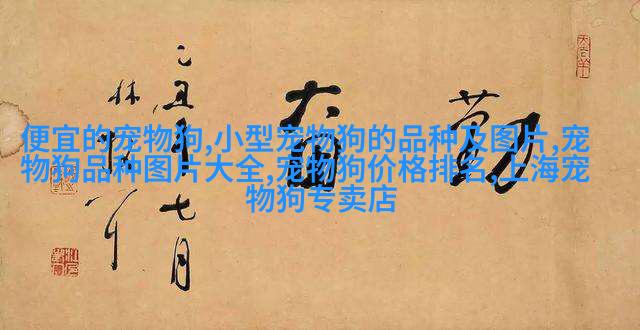 便宜的宠物狗,小型宠物狗的品种及图片,宠
物狗品种图片大全,宠物狗价格排名,上海宠
物狗专卖店
勤奮
丑年七月
林